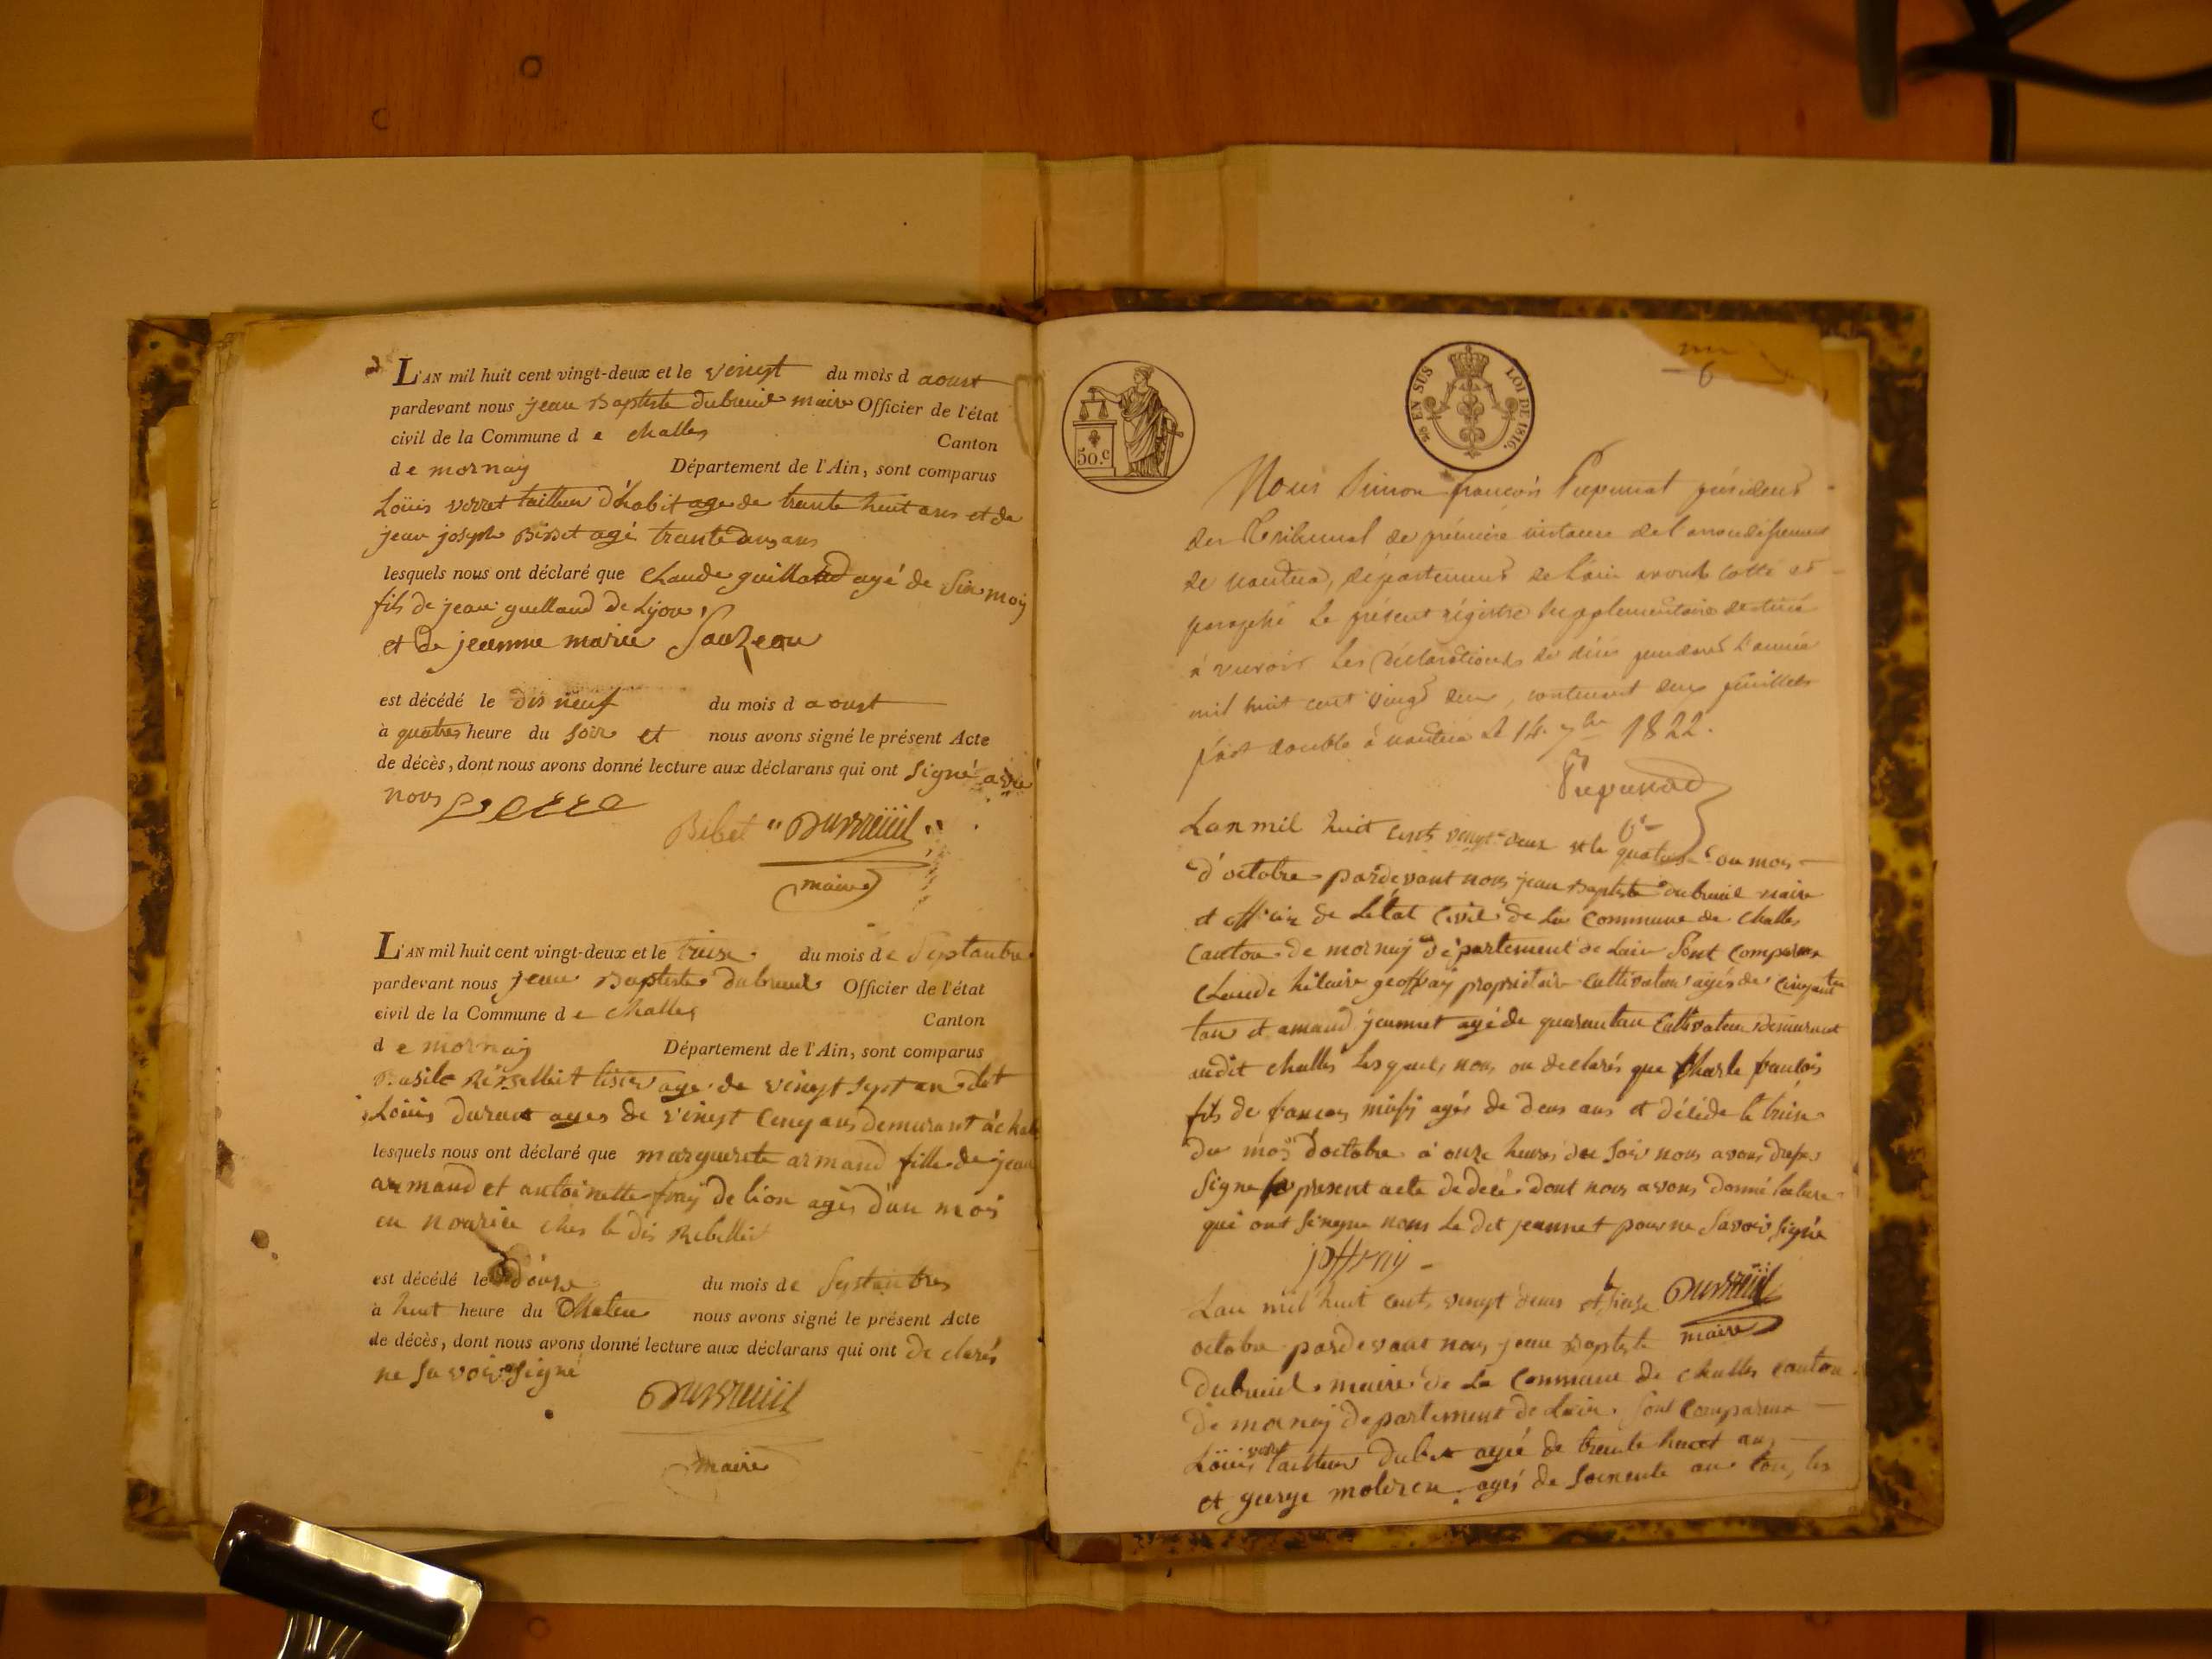 L'AN mil huit cent vingt-deux et le vingt du mois d aoust
pardevant nous jean Baptiste dubreuil maire Officier de l'état
civil de la Commune d e challes Canton
de mornay Département de l'Ain, sont comparus
Loüis verret tailleur d'habit age de trente huit ans et de
jean joseph agé trente ans
lesquels nous ont déclaré que Claude guilland agé de Six moy
fils de jean guilland de Lyon
et de jeanne marie
est décédé le dis neuf du mois d aoust
à quatres heure du soir et nous avons signé le présent Acte
de décès, dont nous avons donné lecture aux déclarans qui ont signé avec
nous
Bibet Dubreüil
maire
L'AN mil huit cent vingt-deux et le treise du mois de Septanbre
pardevant nous jean Baptiste dubreuil Officier de l'état
civil de la Commune d e challes Canton
d e mornay Département de l'Ain, sont comparus
Basile age de vingt sept an et
Loüis durant ages de vingt cinq ans demurant à challe
lesquels nous ont déclaré que marguerite armand fille de jean
armand et antoinette fray de lion agés d'un mois
en nourice ches le dis Rebellet
est décédé le douse du mois de Septanbre
à huit heure du Matin nous avons signé le présent Acte
de décès, dont nous avons donné lecture aux déclarans qui ont declarés
ne savoir signé
Dubreüil
maire
50.c
en SUS LOI DE 1816.
6
Nous Simon françois président
du Tribunal de première instance de l'arrondissement
de nantua, département de l'ain avons cotté et
paraphé le présent régistre supplementaire destiné
à les déclarations de décès pendant l'année
mil huit cent vingt deux, contenant deux feuillets
fait double à nantua le 14 7bre 1822.
Lan mil huit cents vingt deux et le quatorse du mois
d'octobre pardevant nous jean Baptiste dubreuil maire
et officier de Létat Civil de La Commune de challes
Canton de mornay département de Lain Sont Comparus
Claude hilaire geoffray propriétaire cultivateur agés de cinquante
tan et amand jeannet agé de quarantan cultivateur demeurant
audit challes Lesquels nous on declarés que Charle francois
fils de francois agés de deux ans et décédé le treise
du mois d'octobre à onze heures du Soir nous avons
signe le present acte de décé dont nous avons donné lecture
qui ont signe nous Le dit jeannet pour ne savoir signé
joffray
Lan mil huit cents vingt deux et Dubreüil
octobre pardevant nous jean Baptiste maire
dubreuil maire de La Commune de challes canton
de mornay departement de Lain Sont Comparus
Loüis verret tailleur agé de trente huit ans
et george agés de ans tous les